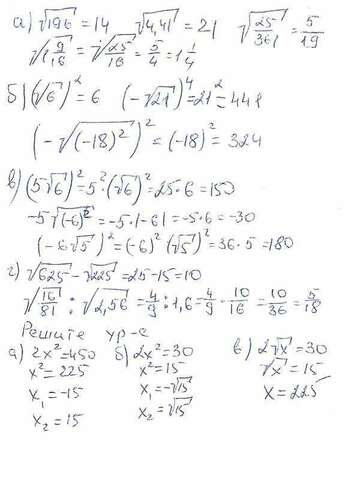 а) √196 = 14 √4,41 = 21 √(25/361) = 5/19
√(1 9/16) = √(25/16) = 5/4 = 1 1/4
б) (√6)² = 6 (-√21)⁴ = 21² = 441
(-√((-18)²))² = (-18)² = 324
в) (5√6)² = 5²·(√6)² = 25·6 = 150
-5√((-6)²) = -5·|-6| = -5·6 = -30
(-6√5)² = (-6)²(√5)² = 36·5 = 180
г) √625 - √225 = 25-15 = 10
√(16/81) : √2,56 = 4/9 : 1,6 = 4/9 · 10/16 = 10/36 = 5/18
Решите ур-е
а) 2x² = 450 б) 2x² = 30 в) 2√x = 30
x² = 225 x² = 15 √x = 15
x₁ = -15 x₁ = -√15 x = 225
x₂ = 15 x₂ = √15